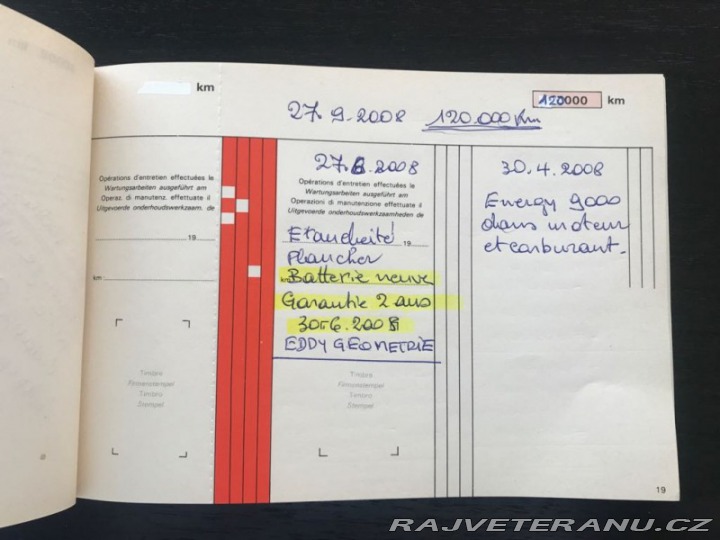 km
120000 km
27.9.2008 120.000 Km
Opérations d'entretien effectuées le
Wartungsarbeiten ausgeführt am
Operaz. di manutenz. effettuate il
Uitgevoerde onderhoudswerkzaam. de
19
km
Timbre
Firmenstempel
Timbro
Stempel
27.6.2008
Opérations d'entretien effectuées le
Wartungsarbeiten ausgeführt am
Operazioni di manutenzione effettuate il
Uitgevoerde onderhoudswerkzaamheden de
Etancheité 19
Plancher
Batterie neuve
Garantie 2 ans
30.6.2008
EDDY GEOMETRIE
Timbre
Firmenstempel
Timbro
Stempel
30.4.2008
Energy 9000
dans moteur
et carburant.
19
RAJVETERANU.CZ